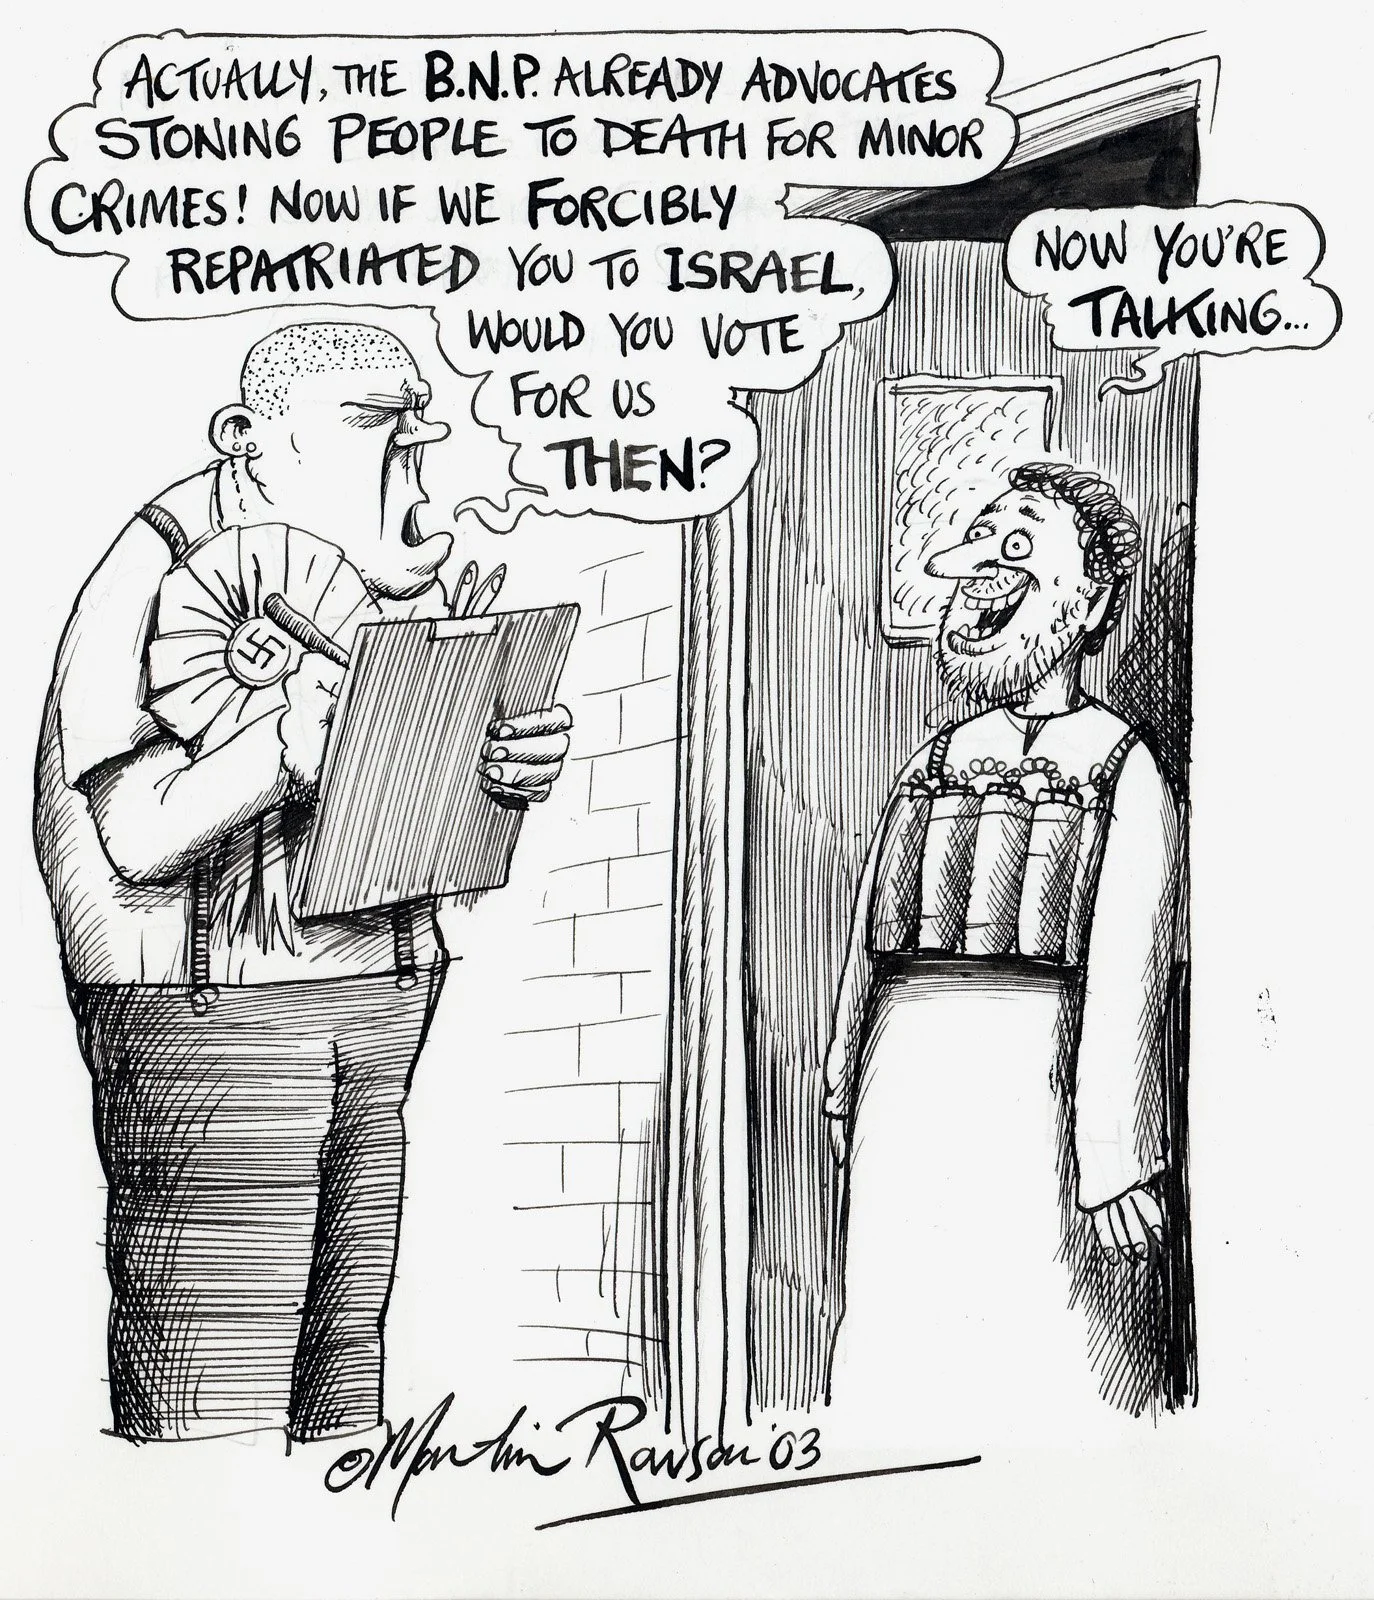 ACTUALLY, THE B.N.P. ALREADY ADVOCATES
STONING PEOPLE TO DEATH FOR MINOR
CRIMES! NOW IF WE FORCIBLY
REPATRIATED YOU TO ISRAEL,
WOULD YOU VOTE
FOR US
THEN?
NOW YOU'RE
TALKING...
© Martin Rowson '03